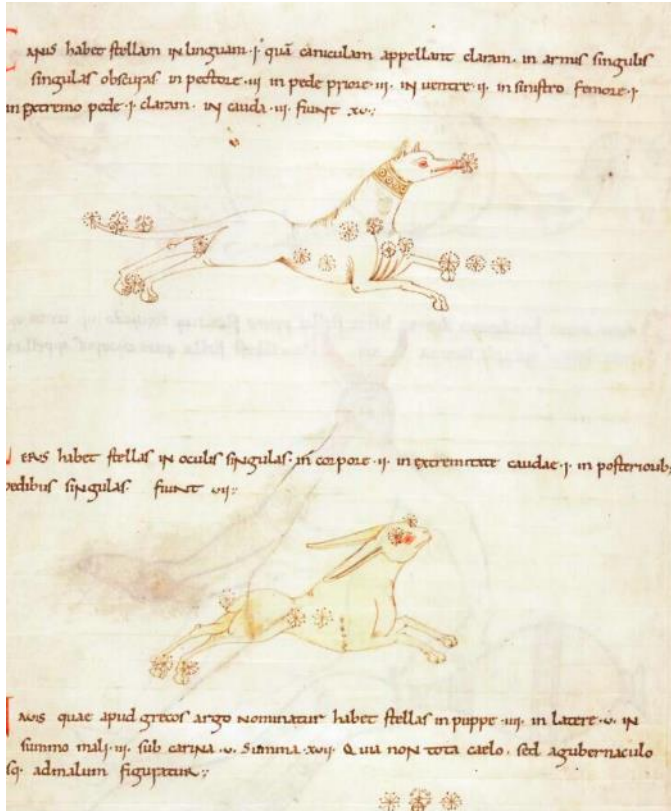 CANIS habet stellam in linguam ·i· quā caniculam appellant claram. in armis singulis
singulas obscuras in pectore ·iii· in pede priore ·iii· in ventre ·ii· in sinistro femore ·i·
in extremo pede ·i· claram. in cauda ·iii· fiunt xv·,
LEPUS habet stellas in oculis singulas· in corpore ·ii· in extremitate caudae ·i· in posteriorib;
pedibus singulas· fiunt vii·,
NAVIS quae apud grecos argo nominatur habet stellas in puppe ·iiii· in latere ·v· in
summo mali ·iii· sub carina ·v· Summa ·xvii· Quia non tota caelo. sed agubernaculo
usq; admalum figuratur·,